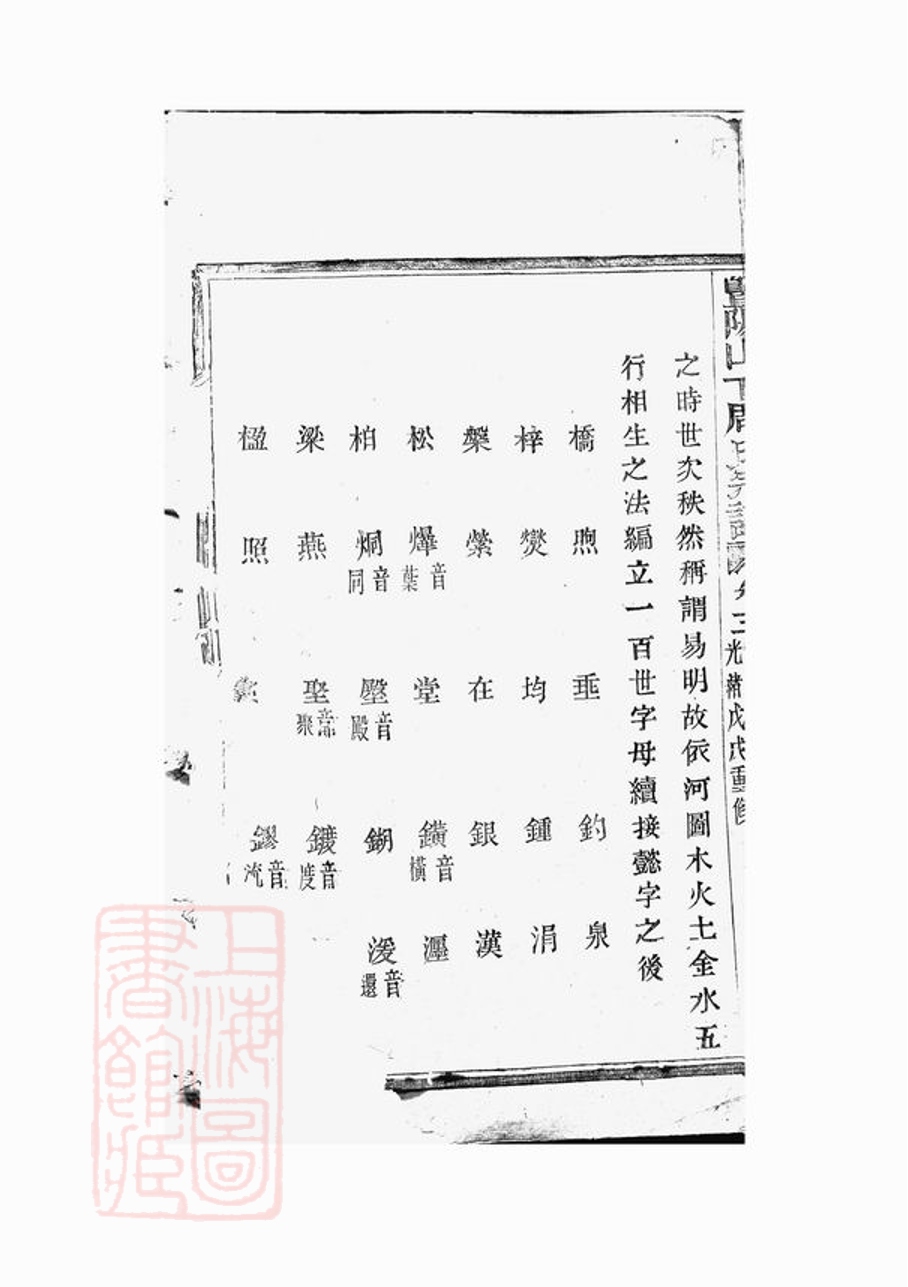 暨陽山下周氏宗譜 卷三 光緒戊戌重修
之時世次秩然稱謂易明故依河圖木火土金水五
行相生之法編立一百世字母續接懿字之後
橋 煦 垂 釣 泉
梓 燹 均 鍾 涓
槳 縈 在 銀 漢
松 燁音葉 堂 鐄音橫 湹
柏 烔音同 壂音殿 鎙 湲音還
梁 燕 埾音聚 鍍音度
楹 照 鏐音流
上海圖書館藏